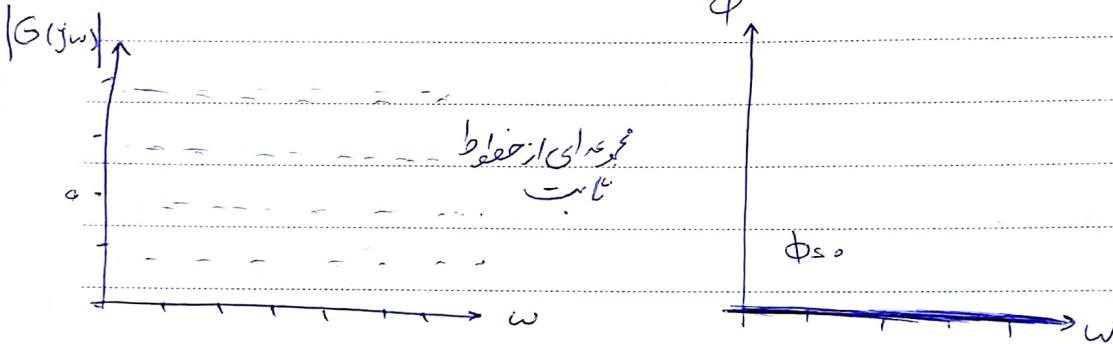 |G(jω)|
φ
مجموعه ای از خطوط
ثابت
0
φ=0
ω
ω